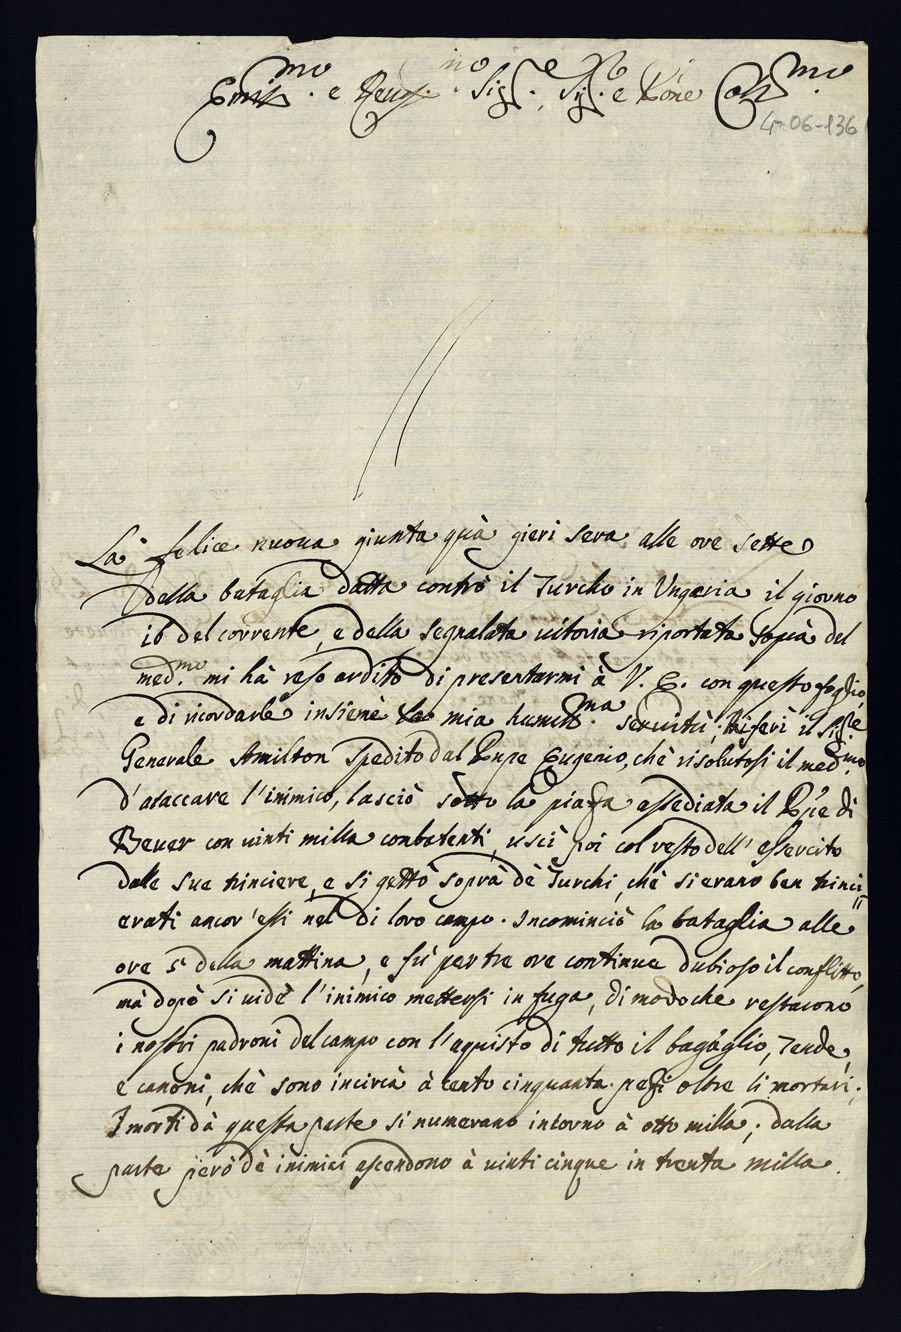 Em.mo e Reu.mo Sig.e Sig.r e Pone Coll.mo
4-06-136
Là felice nuoua giunta quà gieri sera alle ore sette
della bataglia datta contrò il Turcho in Vngeria il giorno
16 del corrente, e della segnalata uitoria riportata soprà del
med.mo mi hà reso ardito di presentarmi à V. E. con questo foglio,
e di ricordarle insieme la mia humill.ma seruitù; Riferì il Sig.re
Generale Amilton spedito dal Pnpe Eugenio, chè risolutosi il med.mo
d'ataccare l'inimico, lasciò sotto la piassa assediata il Pñe di
Beuer con uinti milla combatenti, uscì poi col resto dell' essercito
dalle sue trinciere, e si gettò soprà dè Turchi, chè si erano ben trinci
erati ancor'essi nel di loro campo. Incominciò la bataglia alle
ore 5 della mattina, e fù per tre ore continue dubioso il conflitto,
mà dopò si uidè l'inimico mettersi in fuga, di modo che restarono
i nostri padroni del campo con l'aquisto di tutto il bagaglio, Tende,
e canoni, chè sono incircà à cento cinquanta pessi oltre li mortari;
I morti dà questa parte si numerano intorno à otto milla; dalla
parte però dè inimici ascendono à uinti cinque in trenta milla.